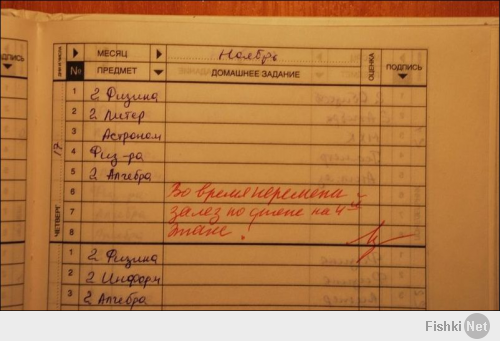 МЕСЯЦ Ноябрь
№ ПРЕДМЕТ ДОМАШНЕЕ ЗАДАНИЕ ОЦЕНКА ПОДПИСЬ
17 ЧЕТВЕРГ
1 2 Физика
2 2 Литер
3 Астроном
4 Физ-ра
5 2 Алгебра
6 Во время перемены
7 залез по стене на 4ый
8 этаж!
1 2 Физика
2 2 Информ
3 2 Алгебра
Fishki Net